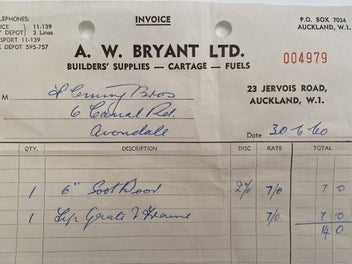 TELEPHONES:
INVOICE
P.O. BOX 7034
AUCKLAND, W.1.
11-139
3 Lines
SPORT 11-139
DEPOT 595-757
A. W. BRYANT LTD.
BUILDERS' SUPPLIES — CARTAGE — FUELS
004979
23 JERVOIS ROAD,
AUCKLAND, W.1.
M Bros
6 Canal Rd.
Avondale
Date 30/6/60
QTY. DESCRIPTION DISC RATE TOTAL
1 6" Soot Door 2½% 7/0 7 0
1 Grate & Frame 7/0 7 0
14 0